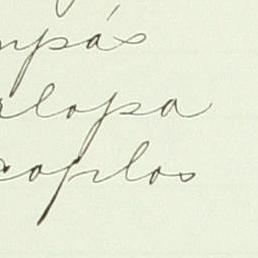 mpás
rlopa
coplos